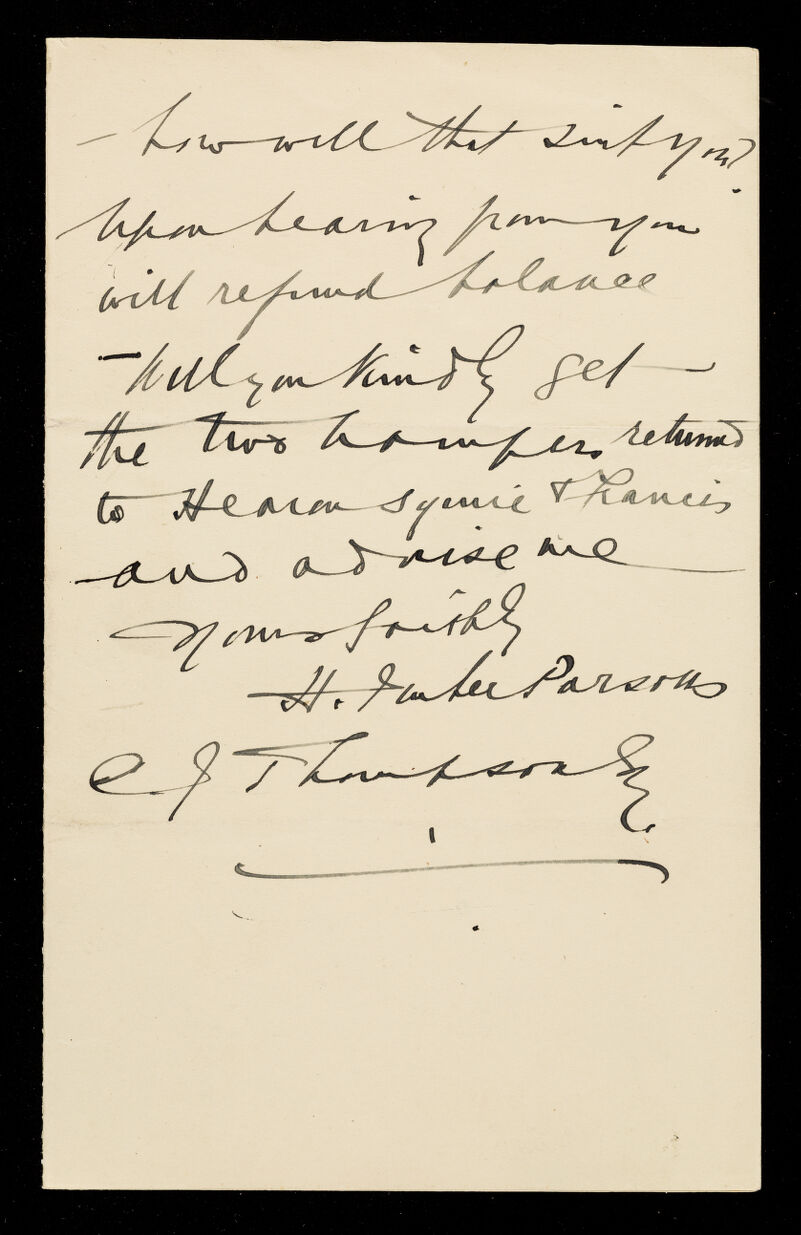 - how will that suit you?
Upon hearing from you
will refund balance
- Will you kindly get
the two hampers returned
to Hearon Squire & Francis
and advise me
Yours faithly
H. Parsons
C J Thompson Esq.